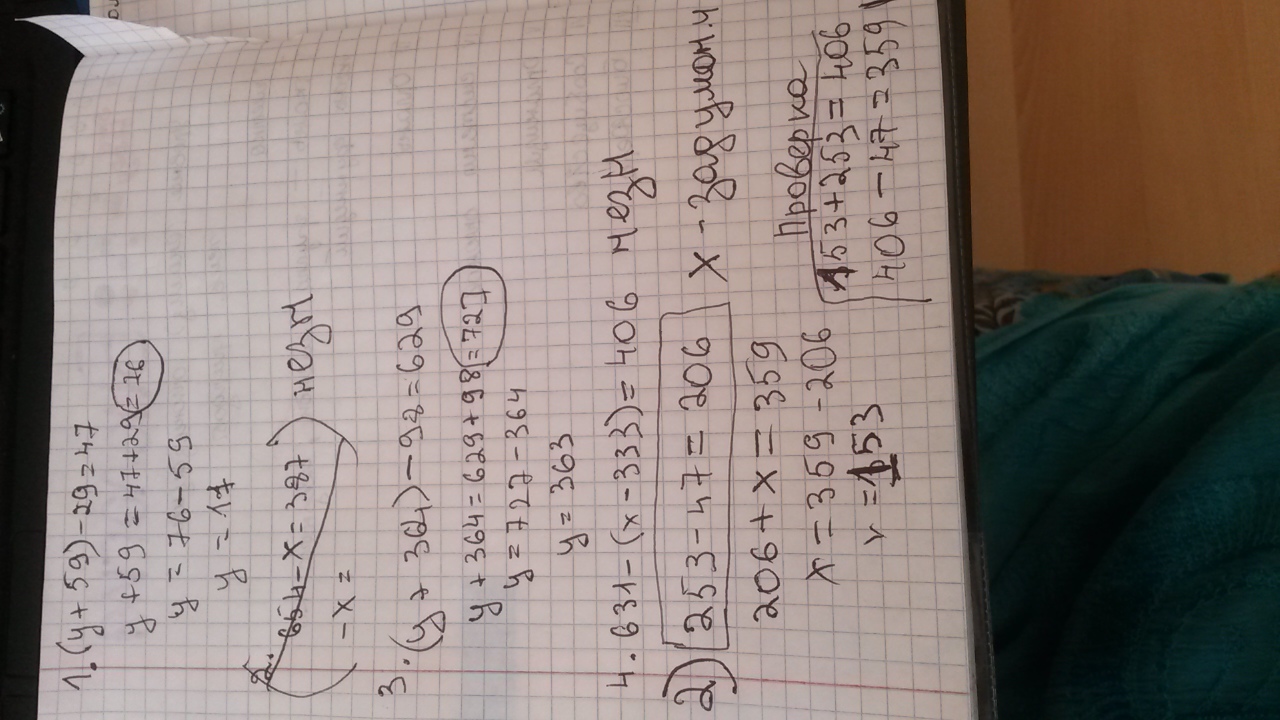 1. (y + 59) - 29 = 47
y + 59 = 47 + 29 = 76
y = 76 - 59
y = 17
2. 654 - x = 387 ) незн
- x =
3. (y + 364) - 98 = 629
y + 364 = 629 + 98 = 727
y = 727 - 364
y = 363
4. 631 - (x - 333) = 406 незн
2) 253 - 47 = 206 x - задуман. ч
206 + x = 359
x = 359 - 206
x = 153
Проверка
153 + 253 = 406
406 - 47 = 359